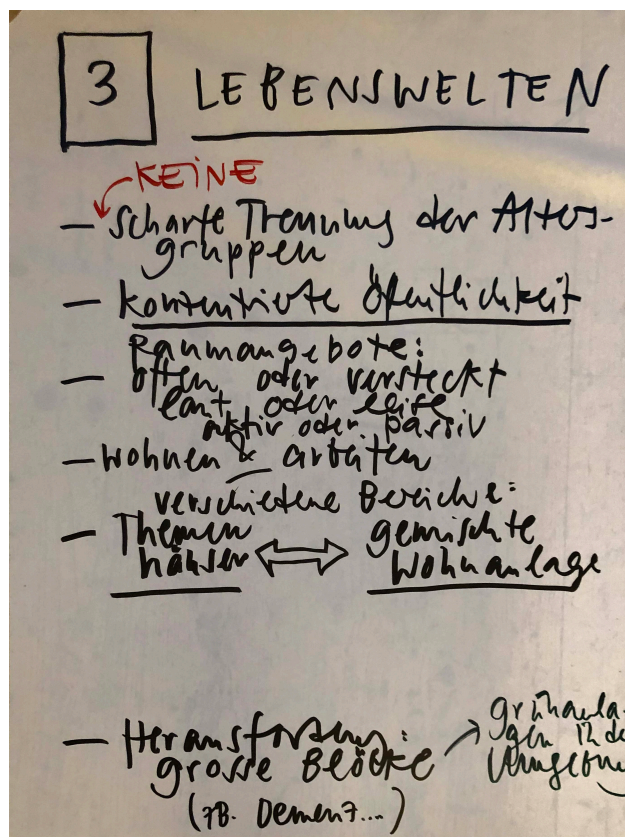 3 LEBENSWELTEN
KEINE
— scharfe Trennung der Alters-
gruppen
— konzentrierte Öffentlichkeit
Raumangebote:
— offen oder versteckt
laut oder leise
aktiv oder passiv
— wohnen & arbeiten
verschiedene Bereiche:
— Themen
häuser ⟷ gemischte
Wohnanlage
— Herausforderung:
grosse Blöcke → grünanla-
gen in de
Umgebun
(zB. Demenz...)